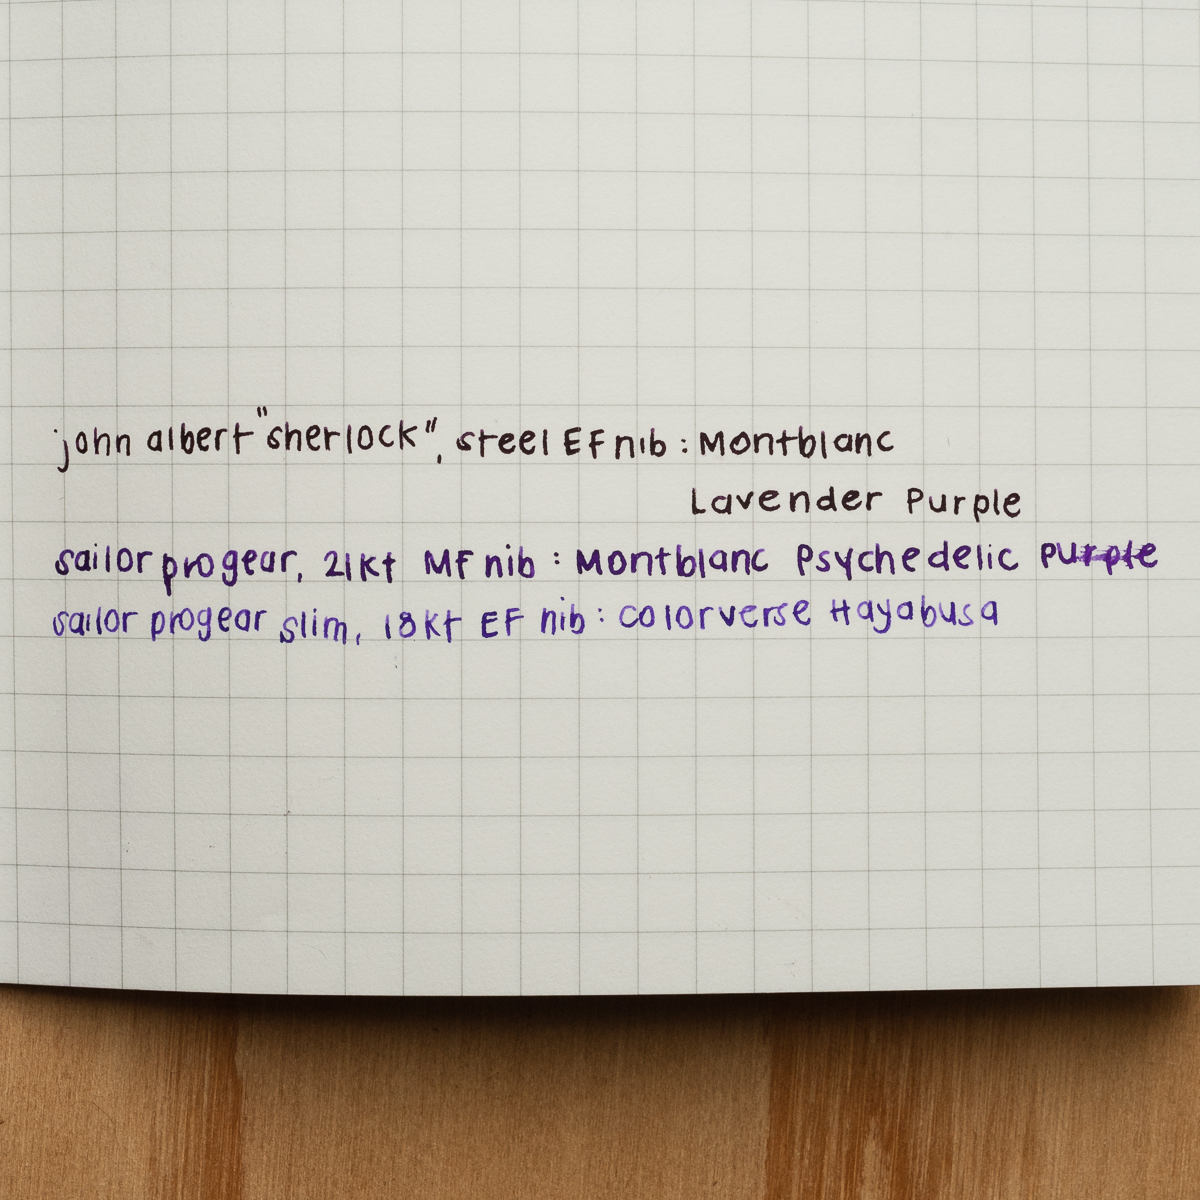 john albert "sherlock", steel EF nib : Montblanc
Lavender Purple
sailor progear, 21kt MF nib : Montblanc Psychedelic purple
sailor progear slim, 18kt EF nib : Colorverse Hayabusa